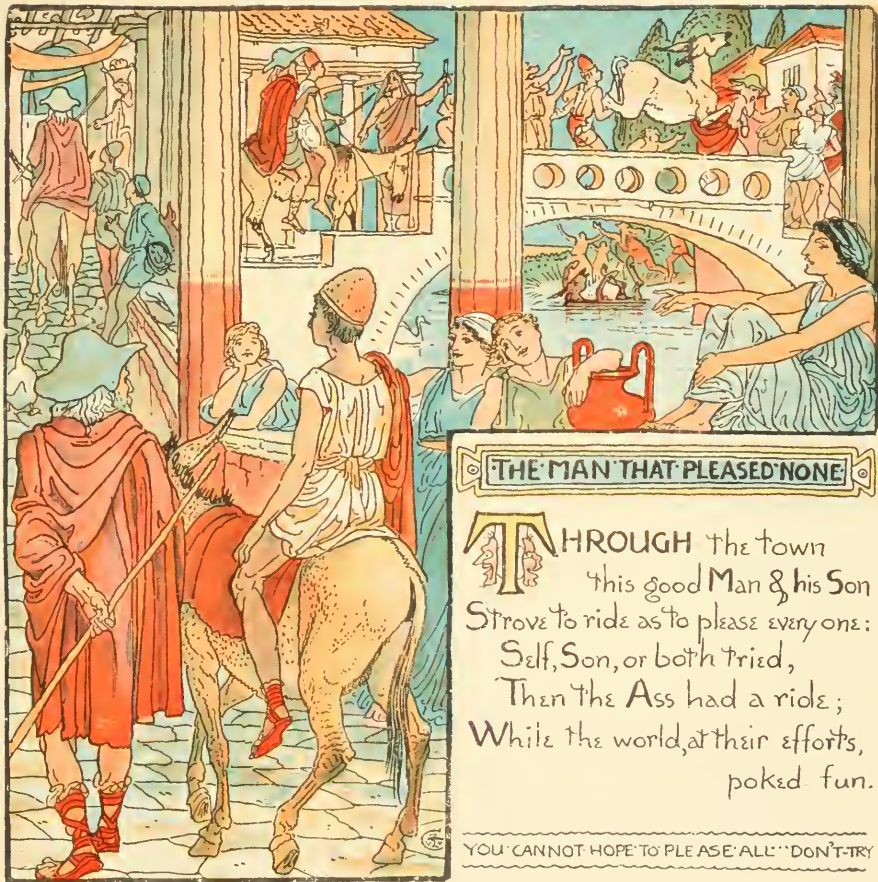 THE·MAN·THAT·PLEASED·NONE
THROUGH the town
this good Man & his Son
Strove to ride as to please every one:
Self, Son, or both tried,
Then the Ass had a ride;
While the world, at their efforts,
poked fun.
YOU·CANNOT·HOPE·TO·PLEASE·ALL··DON'T·TRY